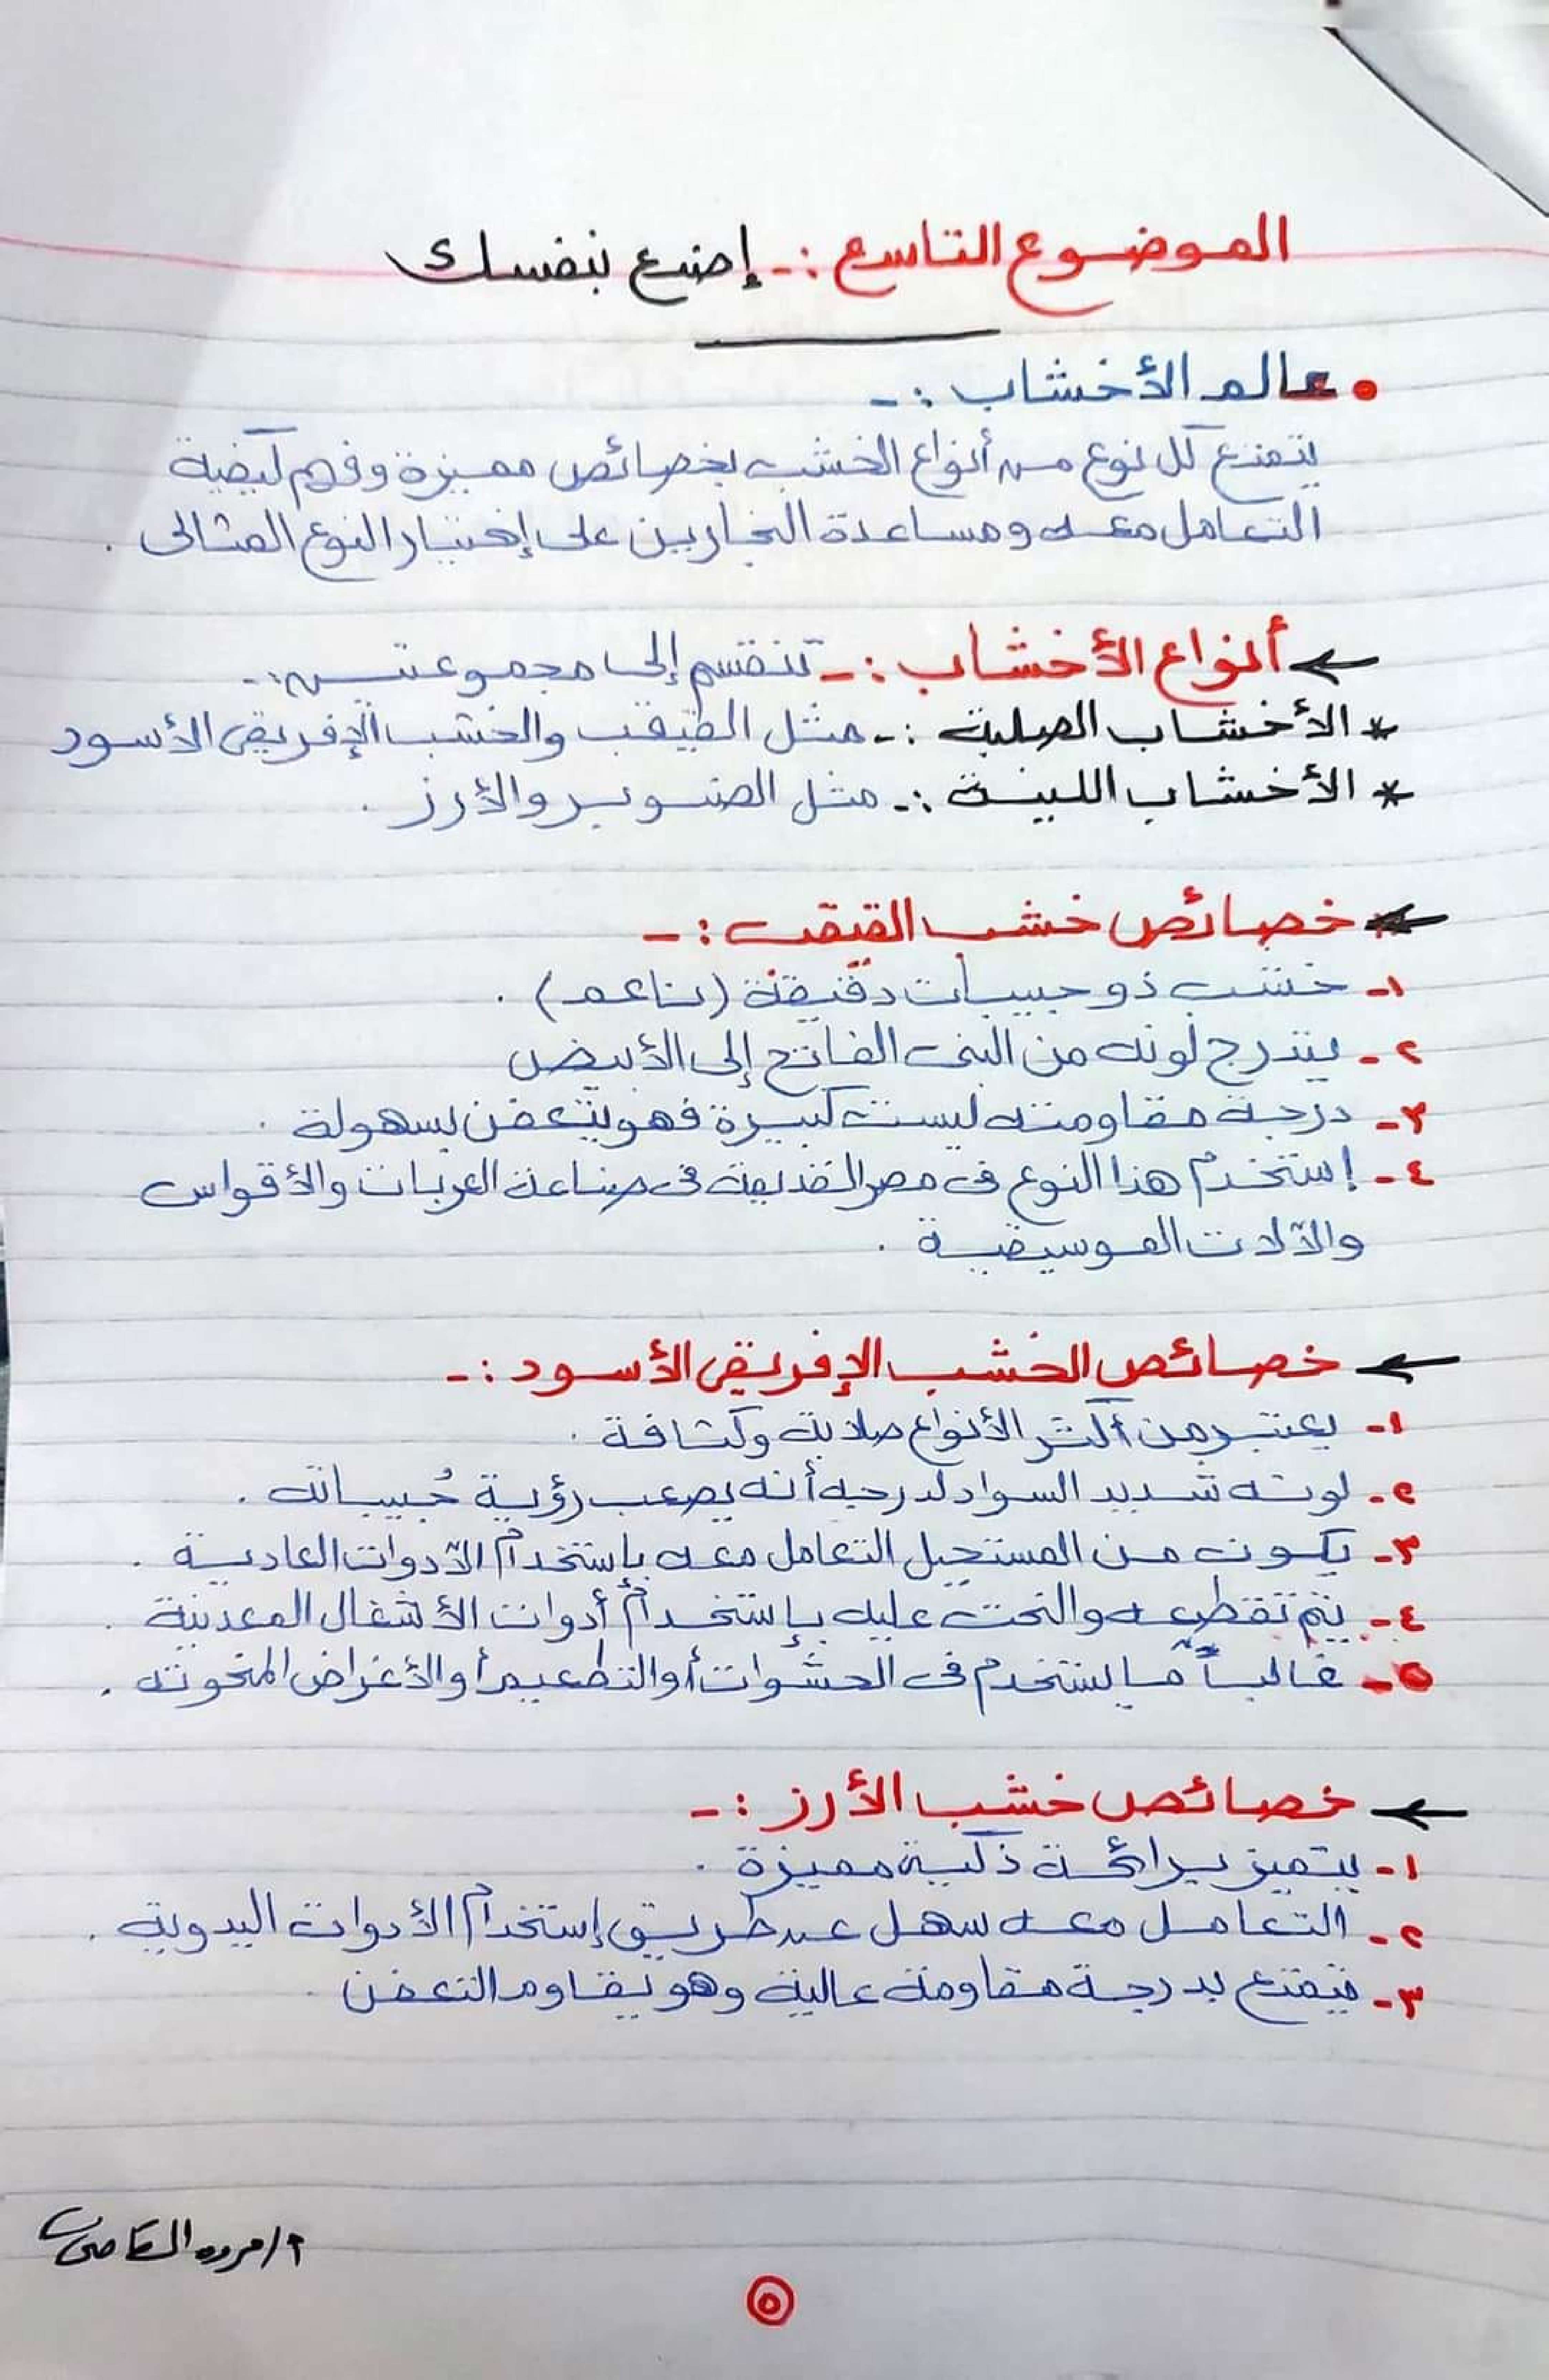 الموضوع التاسع :- إصنع بنفسك
• عالم الأخشاب :-
يتمتع كل نوع من أنواع الخشب بخصائص مميزة وفهم كيفية
التعامل معه ومساعدة النجارين على إختيار النوع المثالى .
← أنواع الأخشاب :- تنقسم إلى مجموعتين :-
* الأخشاب الصلبة :- مثل القيقب والخشب الإفريقى الأسود
* الأخشاب اللينة :- مثل الصنوبر والأرز .
← خصائص خشب القيقب :-
١- خشب ذو حبيبات دقيقة (ناعم) .
٢- يتدرج لونه من البنى الفاتح إلى الأبيض
٣- درجة مقاومته ليست كبيرة فهو يتعفن بسهولة .
٤- إستخدم هذا النوع فى مصر القديمة فى صناعة العربات والأقواس
والآلات الموسيقية .
← خصائص الخشب الإفريقى الأسود :-
١- يعتبر من أكثر الأنواع صلابة وكثافة .
٢- لونه شديد السواد لدرجة أنه يصعب رؤية حُبيباته .
٣- يكون من المستحيل التعامل معه بإستخدام الأدوات العادية .
٤- يتم تقطيعه والنحت عليه بإستخدام أدوات الأشغال المعدنية .
٥- غالباً ما يستخدم فى الحشوات أو التطعيم أو الأغراض المنحوته .
← خصائص خشب الأرز :-
١- يتميز برائحة ذكية مميزة .
٢- التعامل معه سهل عن طريق إستخدام الأدوات اليدوية .
٣- يتمتع بدرجة مقاومة عالية وهو يقاوم التعفن .
أ/مروه
٥